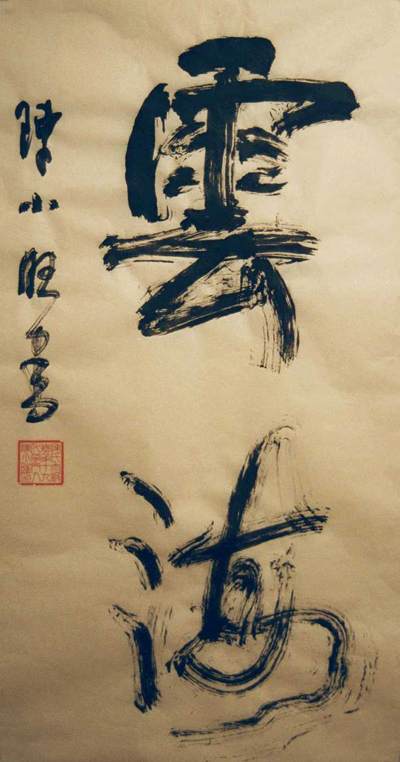 雲海
陳小旺書